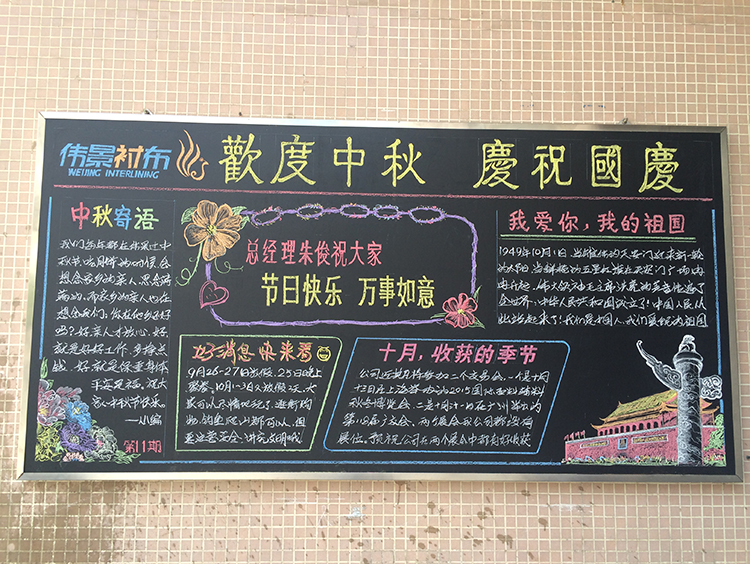 伟景衬布
WEIJING INTERLINING
歡度中秋 慶祝國慶
中秋寄语
我们每年都在
中
秋节吃月饼的时候会
想念家乡的亲人,思念
的,而家乡的亲人也在
想念我们:你在他乡好好
吗?好亲人才放心,好
就是好好工作,多挣点
钱,好就是保重身体
平安是福,祝大
家中秋节快乐。
——小编
第11期
总经理朱俊祝大家
节日快乐 万事如意
好消息快来看
9月26-27日放假,25日晚上
聚餐,10月1-3日又放假3天,大
家可以尽情地玩了,逛街购
物,钓鱼爬山都可以,但
是这要安全、讲究文明哦!
我爱你,我的祖国
1949年10月1日,当雄伟的天安门迎来新一轮
的太阳,当鲜艳的五星红旗在天安门广场冉
冉升起,伟大领袖毛主席洪亮的声音传遍了
全世界:中华人民共和国成立了!中国人民从
此站起来了!我们爱祖国
十月,收获的季节
公司近期将参加二个交易会,一个是十月
十三日在上海举办的2015国际面料辅料
秋冬博览会,二是十月
在广州举办的
第118届广交会,两个展会我公司都设有
展位。预祝公司在两个展会中都有好收获